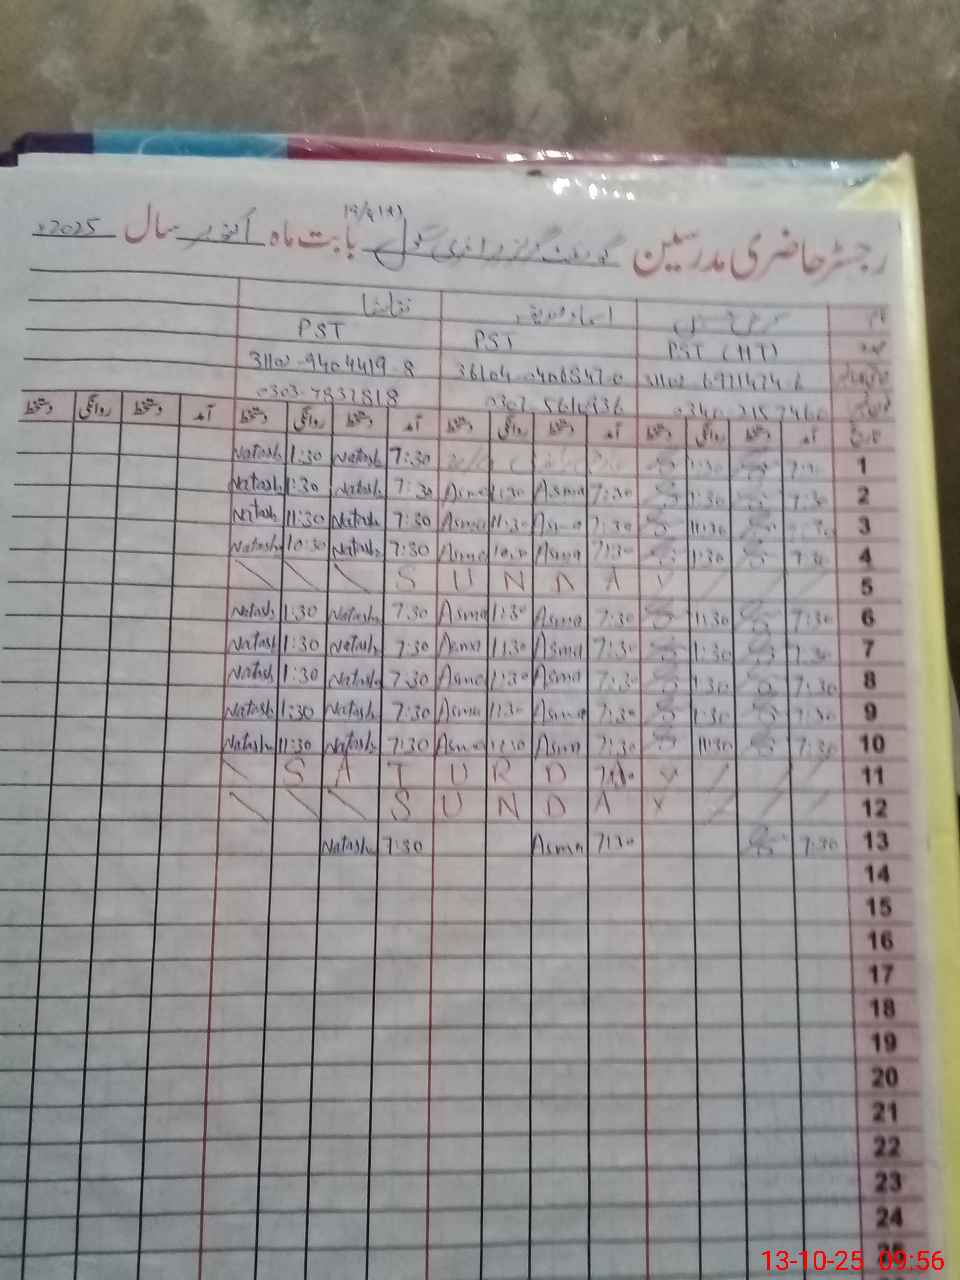 رجسٹر حاضری مدرسین گورنمنٹ گرلز پرائمری سکول بابت ماہ اکتوبر سال 2025ء
نام اسماء نتاشا
عہدہ PST (HT) PST PST
31102-9404419-8
0303-7832818
تاریخ آمد دستخط روانگی دستخط آمد دستخط روانگی دستخط آمد دستخط روانگی دستخط آمد دستخط روانگی دستخط
1 7:30 Natash 1:30 Natash
2 7:30 1:30 7:30 Asma 1:30 Asma 7:30 Natash 1:30 Natash
3 11:30 7:30 Asma 11:30 Asma 7:30 Natash 11:30 Natash
4 7:30 1:30 7:30 Asma Asma 7:30 Natash 10:30 Natash
5 S U N D A Y
6 7:30 11:30 7:30 Asma 1:30 Asma 7:30 Natash 1:30 Natash
7 7:30 1:30 7:30 Asma 1:30 Asma 7:30 Natash 1:30 Natash
8 7:30 1:30 7:30 Asma 1:30 Asma 7:30 Natash 1:30 Natash
9 7:30 1:30 7:30 Asma 11:30 Asma 7:30 Natash 1:30 Natash
10 7:30 11:30 7:30 Asma Asma 7:30 Natash 11:30 Natash
11 S A T U R D A Y
12 S U N D A Y
13 7:30 7:30 Asma 7:30 Natash
14
15
16
17
18
19
20
21
22
23
24
25
13-10-25 09:56